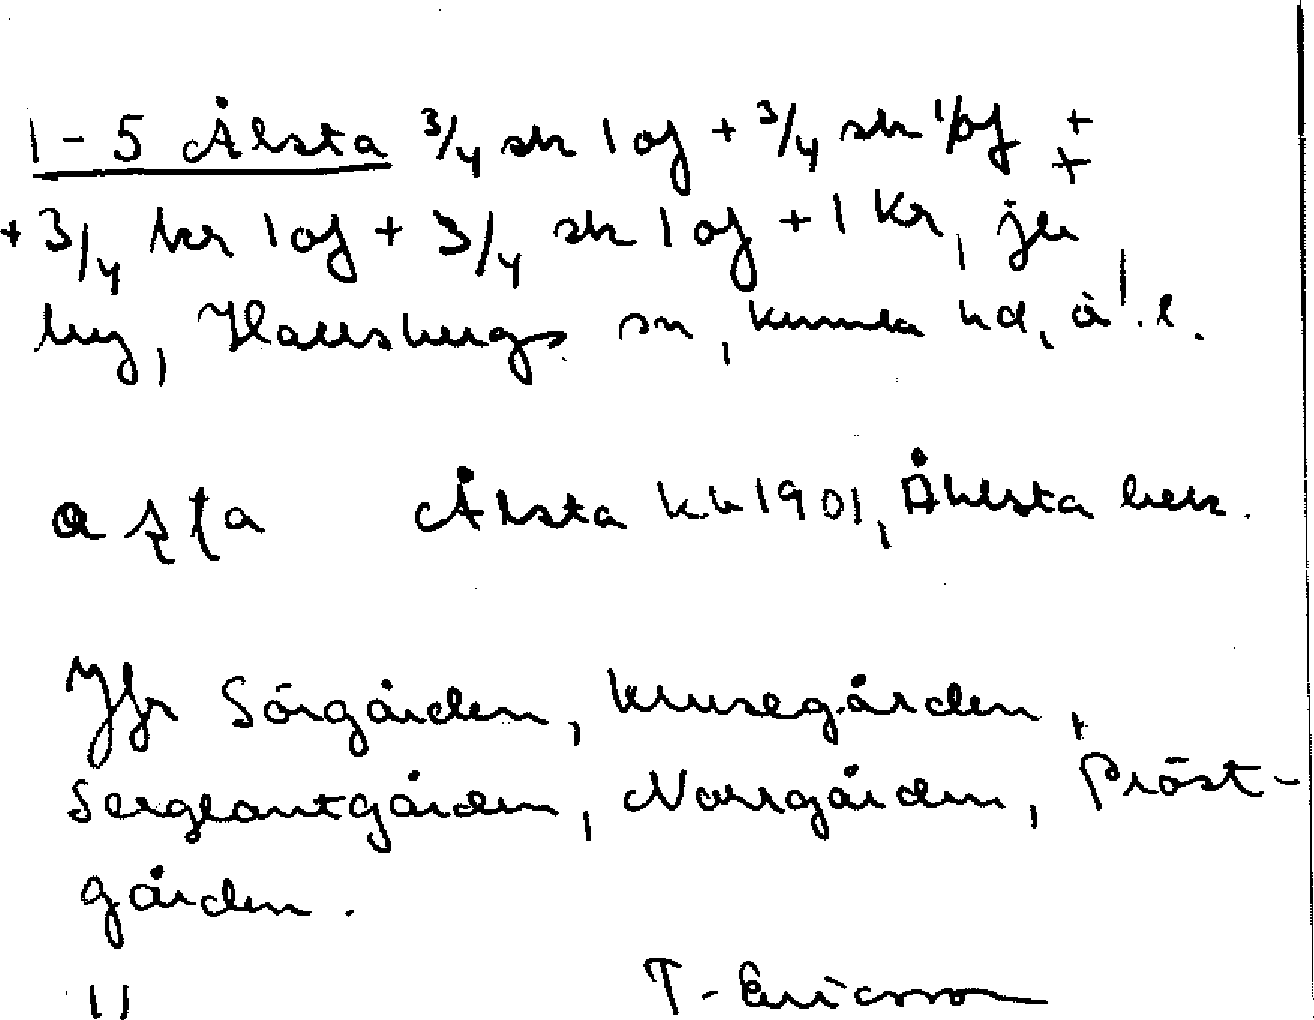 1-5 Ålsta 3/4 sk 1 of + 3/4 sk 1 of +
+ 3/4 kr 1 of + 3/4 sk 1 of + 1 kr, je
by, Hallsbergs sn, Kumla hd, Ö. l.
Ålsta kb 1901, Åhlsta bek.
Jfr Sörgården, Krusegården,
Sergeantgården, Norrgården, Präst-
gården.
11 T. Ericsson